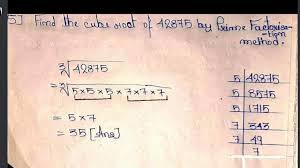 5] Find the cube root of 42875 by Prime Factorisa-
tion
method.
∛42875
= ∛5×5×5×7×7×7
= 5×7
= 35 [Ans]
5 | 42875
5 | 8575
5 | 1715
7 | 343
7 | 49
7